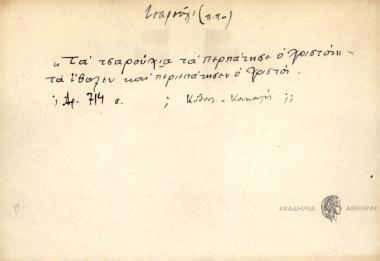 Τσαρούχι (π.π.)
„ Τα τσαρούχια τα περπάτησε ο Χριστός "
τα έβαλεν και περιεπάτησεν ο Χριστός.
Αρ. 714 σ. ; Κύθνος - ;;
ΑΚΑΔΗΜΙΑ ΑΘΗΝΩΝ